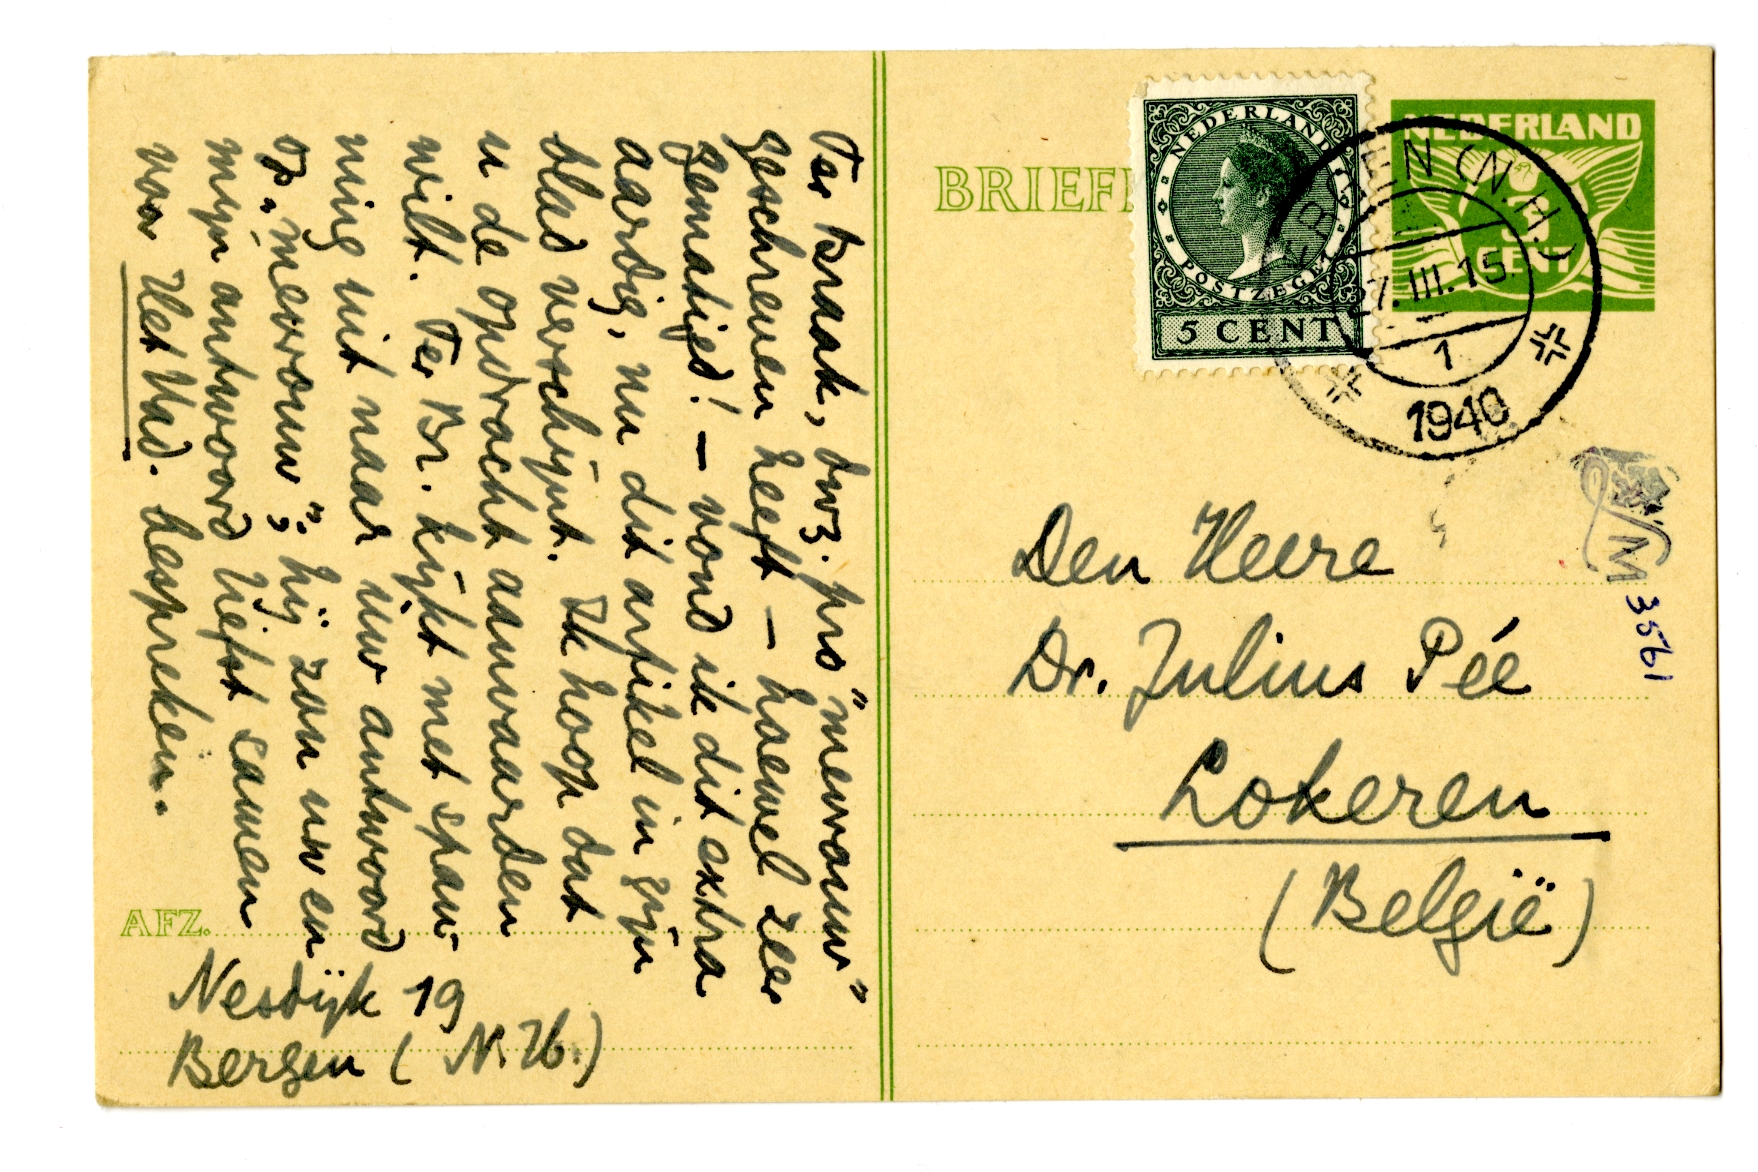 Ter Braak, dwz. pro "mevrouw"
geschreven heeft – hoewel zeer
gematigd! – vond ik dit extra
aardig, nu dit artikel in zijn
blad verschijnt. Ik hoop dat
u de opdracht aanvaarden
wilt. Ter Br. kijkt met span-
ning uit naar uw antwoord
op "mevrouw"; hij zou uw en
mijn antwoord liefst samen
voor Het Vad. bespreken.
AFZ.
Nesdijk 19
Bergen (N.H.)
BRIEFK
NEDERLAND
POSTZEGEL
5 CENT
NEDERLAND
CENT
BERGEN (N.H.)
III.15
1
1940
Den Heere
Dr. Julius Pée
Lokeren
(België)
M 3561